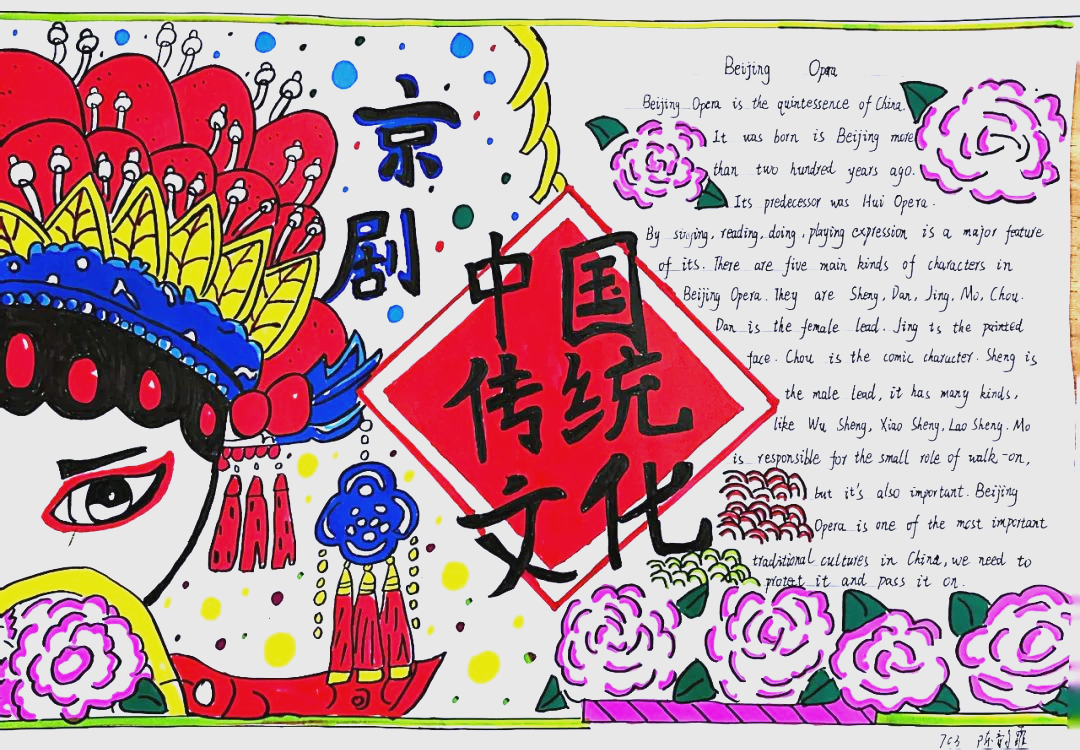 京
剧
中国
传统
文化
Beijing Opera
Beijing Opera is the quintessence of China.
It was born is Beijing more
than two hundred years ago.
Its predecessor was Hui Opera.
By singing, reading, doing, playing expression is a major feature
of its. There are five main kinds of characters in
Beijing Opera. They are Sheng, Dan, Jing, Mo, Chou.
Dan is the female lead. Jing is the painted
face. Chou is the comic character. Sheng is
the male lead, it has many kinds,
like Wu Sheng, Xiao Sheng, Lao Sheng. Mo
is responsible for the small role of walk-on,
but it's also important. Beijing
Opera is one of the most important
traditional cultures in China, we need to
protect it and pass it on.
703